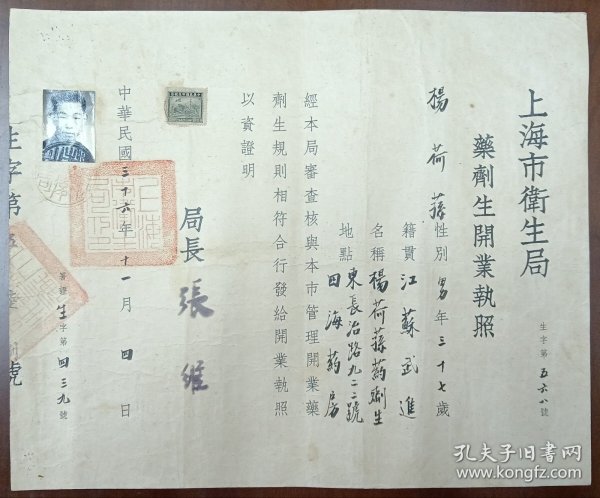 上海市衛生局
藥劑生開業執照
生字第五六八號
楊荷蓀性別男年三十七歲
籍貫江蘇武進
名稱楊荷蓀药劑生
地點東長治路九二二號
四海药房
經本局審查核與本市管理開業藥
劑生規則相符合行發給開業執照
以資證明
局長張維
中華民國三十六年十一月四日
署證生字第四三九號
生字第
號
孔夫子旧书网
www.kongfz.com